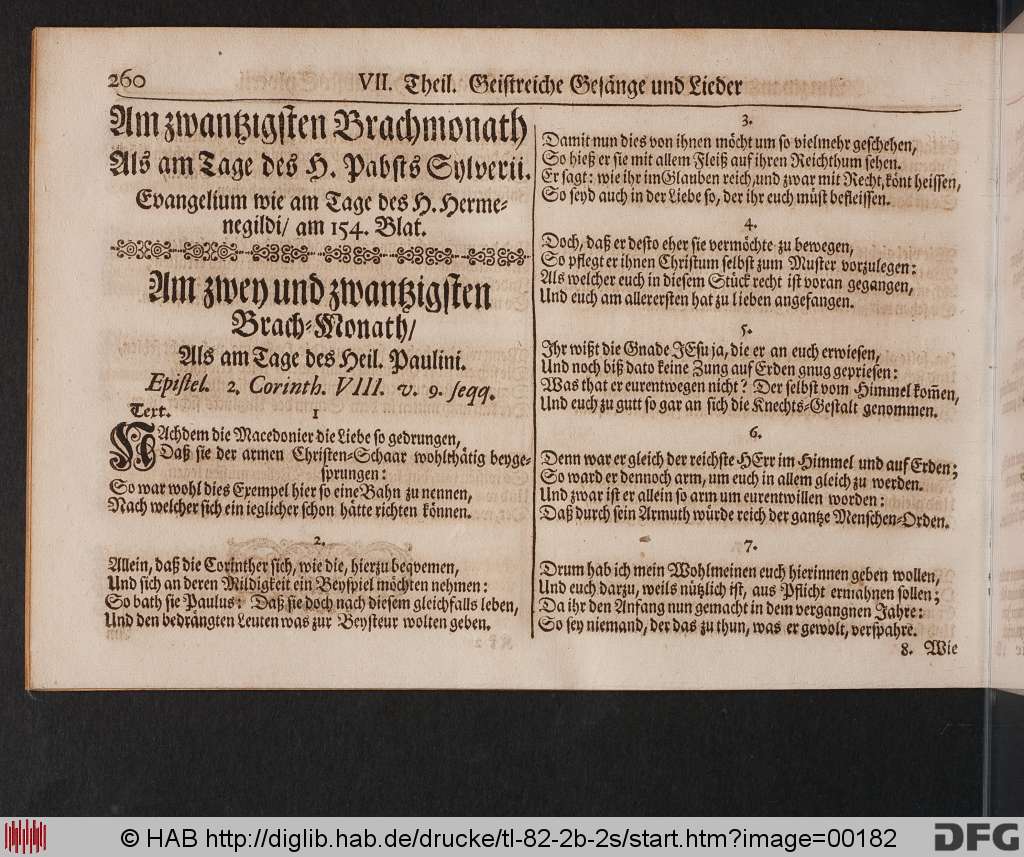 260
VII. Theil. Geistreiche Gesänge und Lieder
Am zwantzigsten Brachmonath
Als am Tage des H. Pabsts Sylverii.
Evangelium wie am Tage des H. Herme-
negildi/ am 154. Blat.
Am zwey und zwantzigsten
Brach-Monath/
Als am Tage des Heil. Paulini.
Epistel. 2. Corinth. VIII. v. 9. seqq.
Text.
1
NAchdem die Macedonier die Liebe so gedrungen,
Daß sie der armen Christen-Schaar wohlthätig beyge-
sprungen:
So war wohl dies Exempel hier so eine Bahn zu nennen,
Nach welcher sich ein ieglicher schon hätte richten können.
2.
Allein, daß die Corinther sich, wie die, hierzu beqvemen,
Und sich an deren Mildigkeit ein Beyspiel möchten nehmen:
So bath sie Paulus: Daß sie doch nach diesem gleichfalls leben,
Und den bedrängten Leuten was zur Beysteur wolten geben.
3.
Damit nun dies von ihnen möcht um so vielmehr geschehen,
So hieß er sie mit allem Fleiß auf ihren Reichthum sehen.
Er sagt: wie ihr im Glauben reich, und zwar mit Recht, könt heissen,
So seyd auch in der Liebe so, der ihr euch müst befleissen.
4.
Doch, daß er desto eher sie vermöchte zu bewegen,
So pflegt er ihnen Christum selbst zum Muster vorzulegen:
Als welcher euch in diesem Stück recht ist voran gegangen,
Und euch am allerersten hat zu lieben angefangen.
5.
Ihr wißt die Gnade JEsu ja, die er an euch erwiesen,
Und noch biß dato keine Zung auf Erden gnug gepriesen:
Was that er eurentwegen nicht? Der selbst vom Himmel kom̃en,
Und euch zu gutt so gar an sich die Knechts-Gestalt genommen.
6.
Denn war er gleich der reichste HErr im Himmel und auf Erden;
So ward er dennoch arm, um euch in allem gleich zu werden.
Und zwar ist er allein so arm um eurentwillen worden:
Daß durch sein Armuth würde reich der gantze Menschen-Orden.
7.
Drum hab ich mein Wohlmeinen euch hierinnen geben wollen,
Und euch darzu, weils nützlich ist, aus Pflicht ermahnen sollen;
Da ihr den Anfang nun gemacht in dem vergangnen Jahre:
So sey niemand, der das zu thun, was er gewolt, verspahre.
8. Wie
© HAB http://diglib.hab.de/drucke/tl-82-2b-2s/start.htm?image=00182
DFG